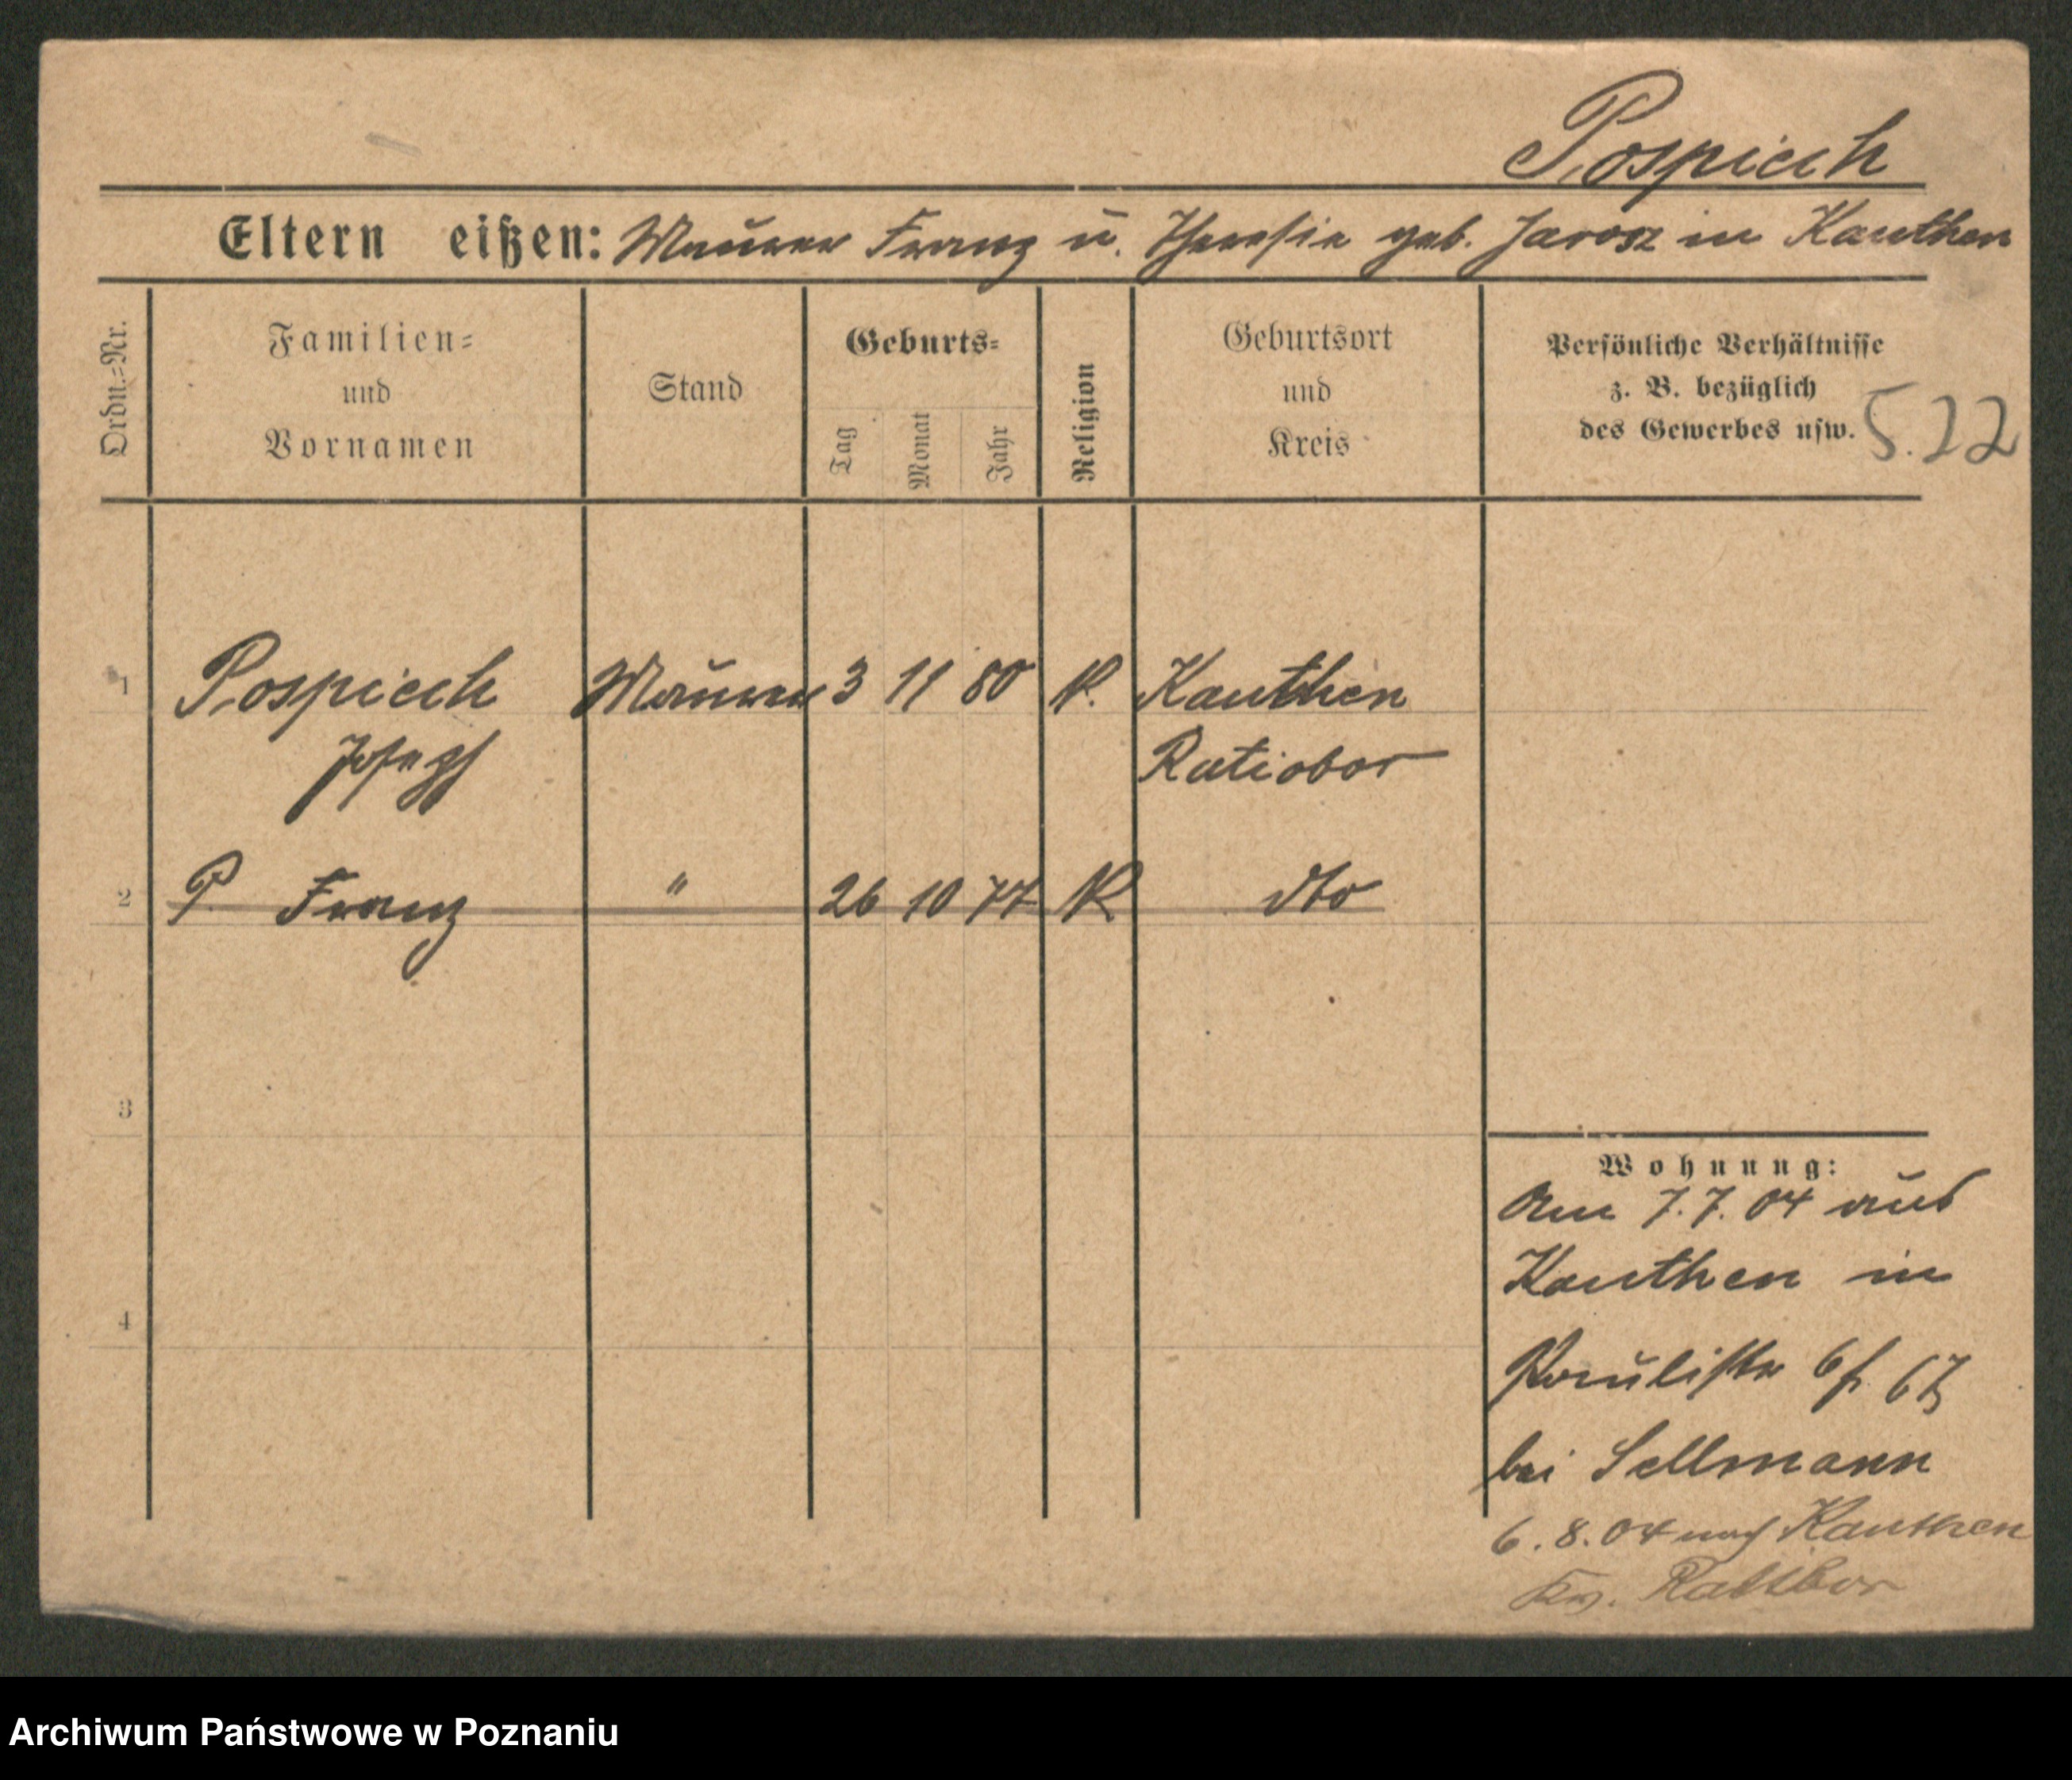 Pospiech
Eltern eißen: Maurer Franz u. Theresie geb. Jarosz in Kauthen
Ordn.=Nr.
Familien=
und
Vornamen
Stand
Geburts=
Tag
Monat
Jahr
Religion
Geburtsort
und
Kreis
Persönliche Verhältnisse
z. B. bezüglich
des Gewerbes usw.
5.22
1 Pospiech Maurer 3 11 80 K. Kauthen
Joseph Ratiobor
2 P. Franz " 26 10 77 K dto
3
Wohnung:
Am 7.7.04 aus
Kauthen in
4
67
bei Sellmann
6.8.04 nach Kauthen
Kr. Ratibor
Archiwum Państwowe w Poznaniu